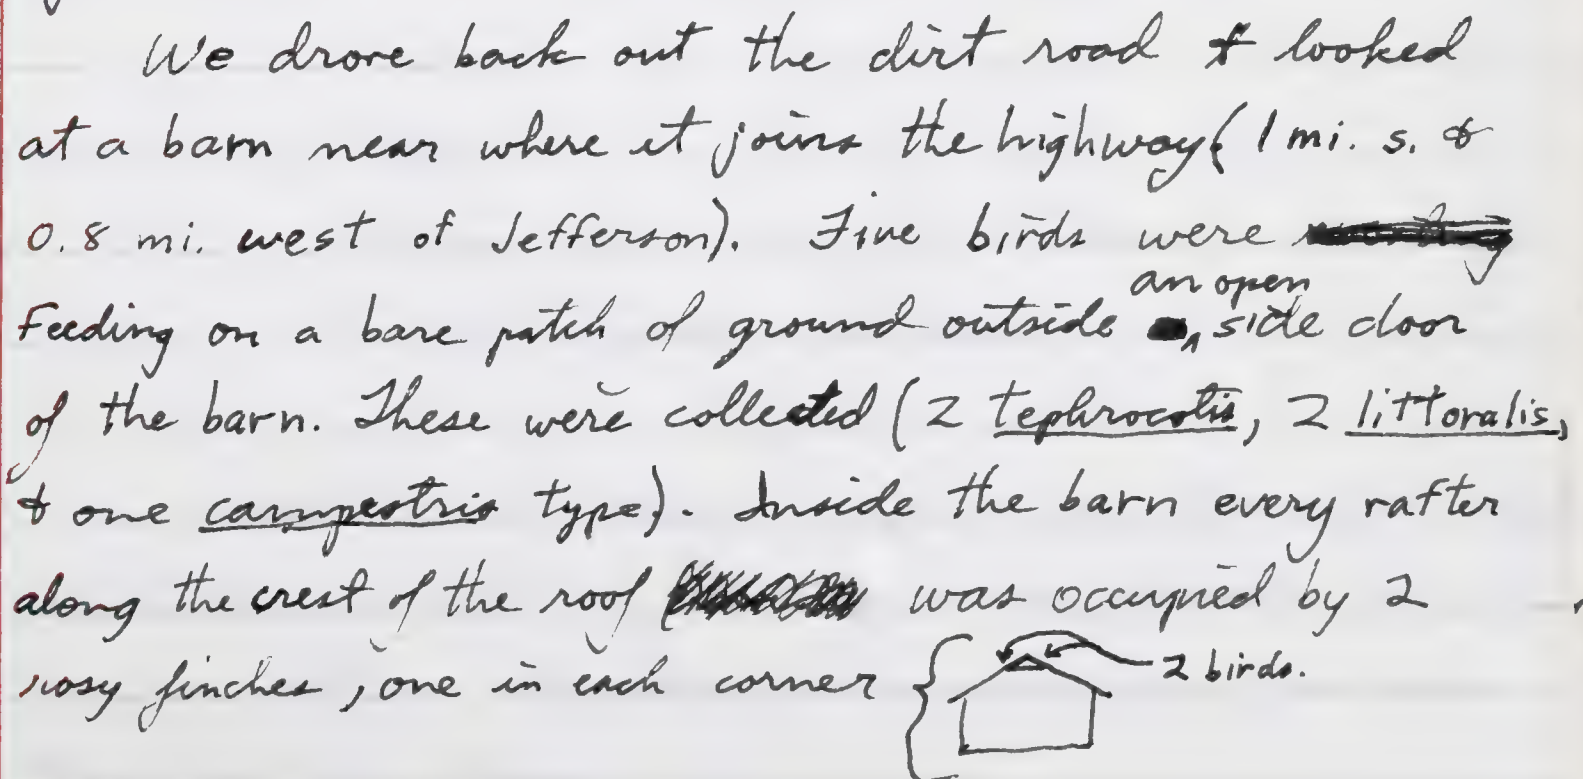 We drove back out the dirt road & looked
at a barn near where it joins the highway (1 mi. s. &
0.8 mi. west of Jefferson). Five birds were
an open
feeding on a bare patch of ground outside ‸ side door
of the barn. These were collected (2 tephrocotis, 2 littoralis,
& one campestris type). Inside the barn every rafter
along the crest of the roof was occupied by 2
rosy finches, one in each corner { 2 birds.